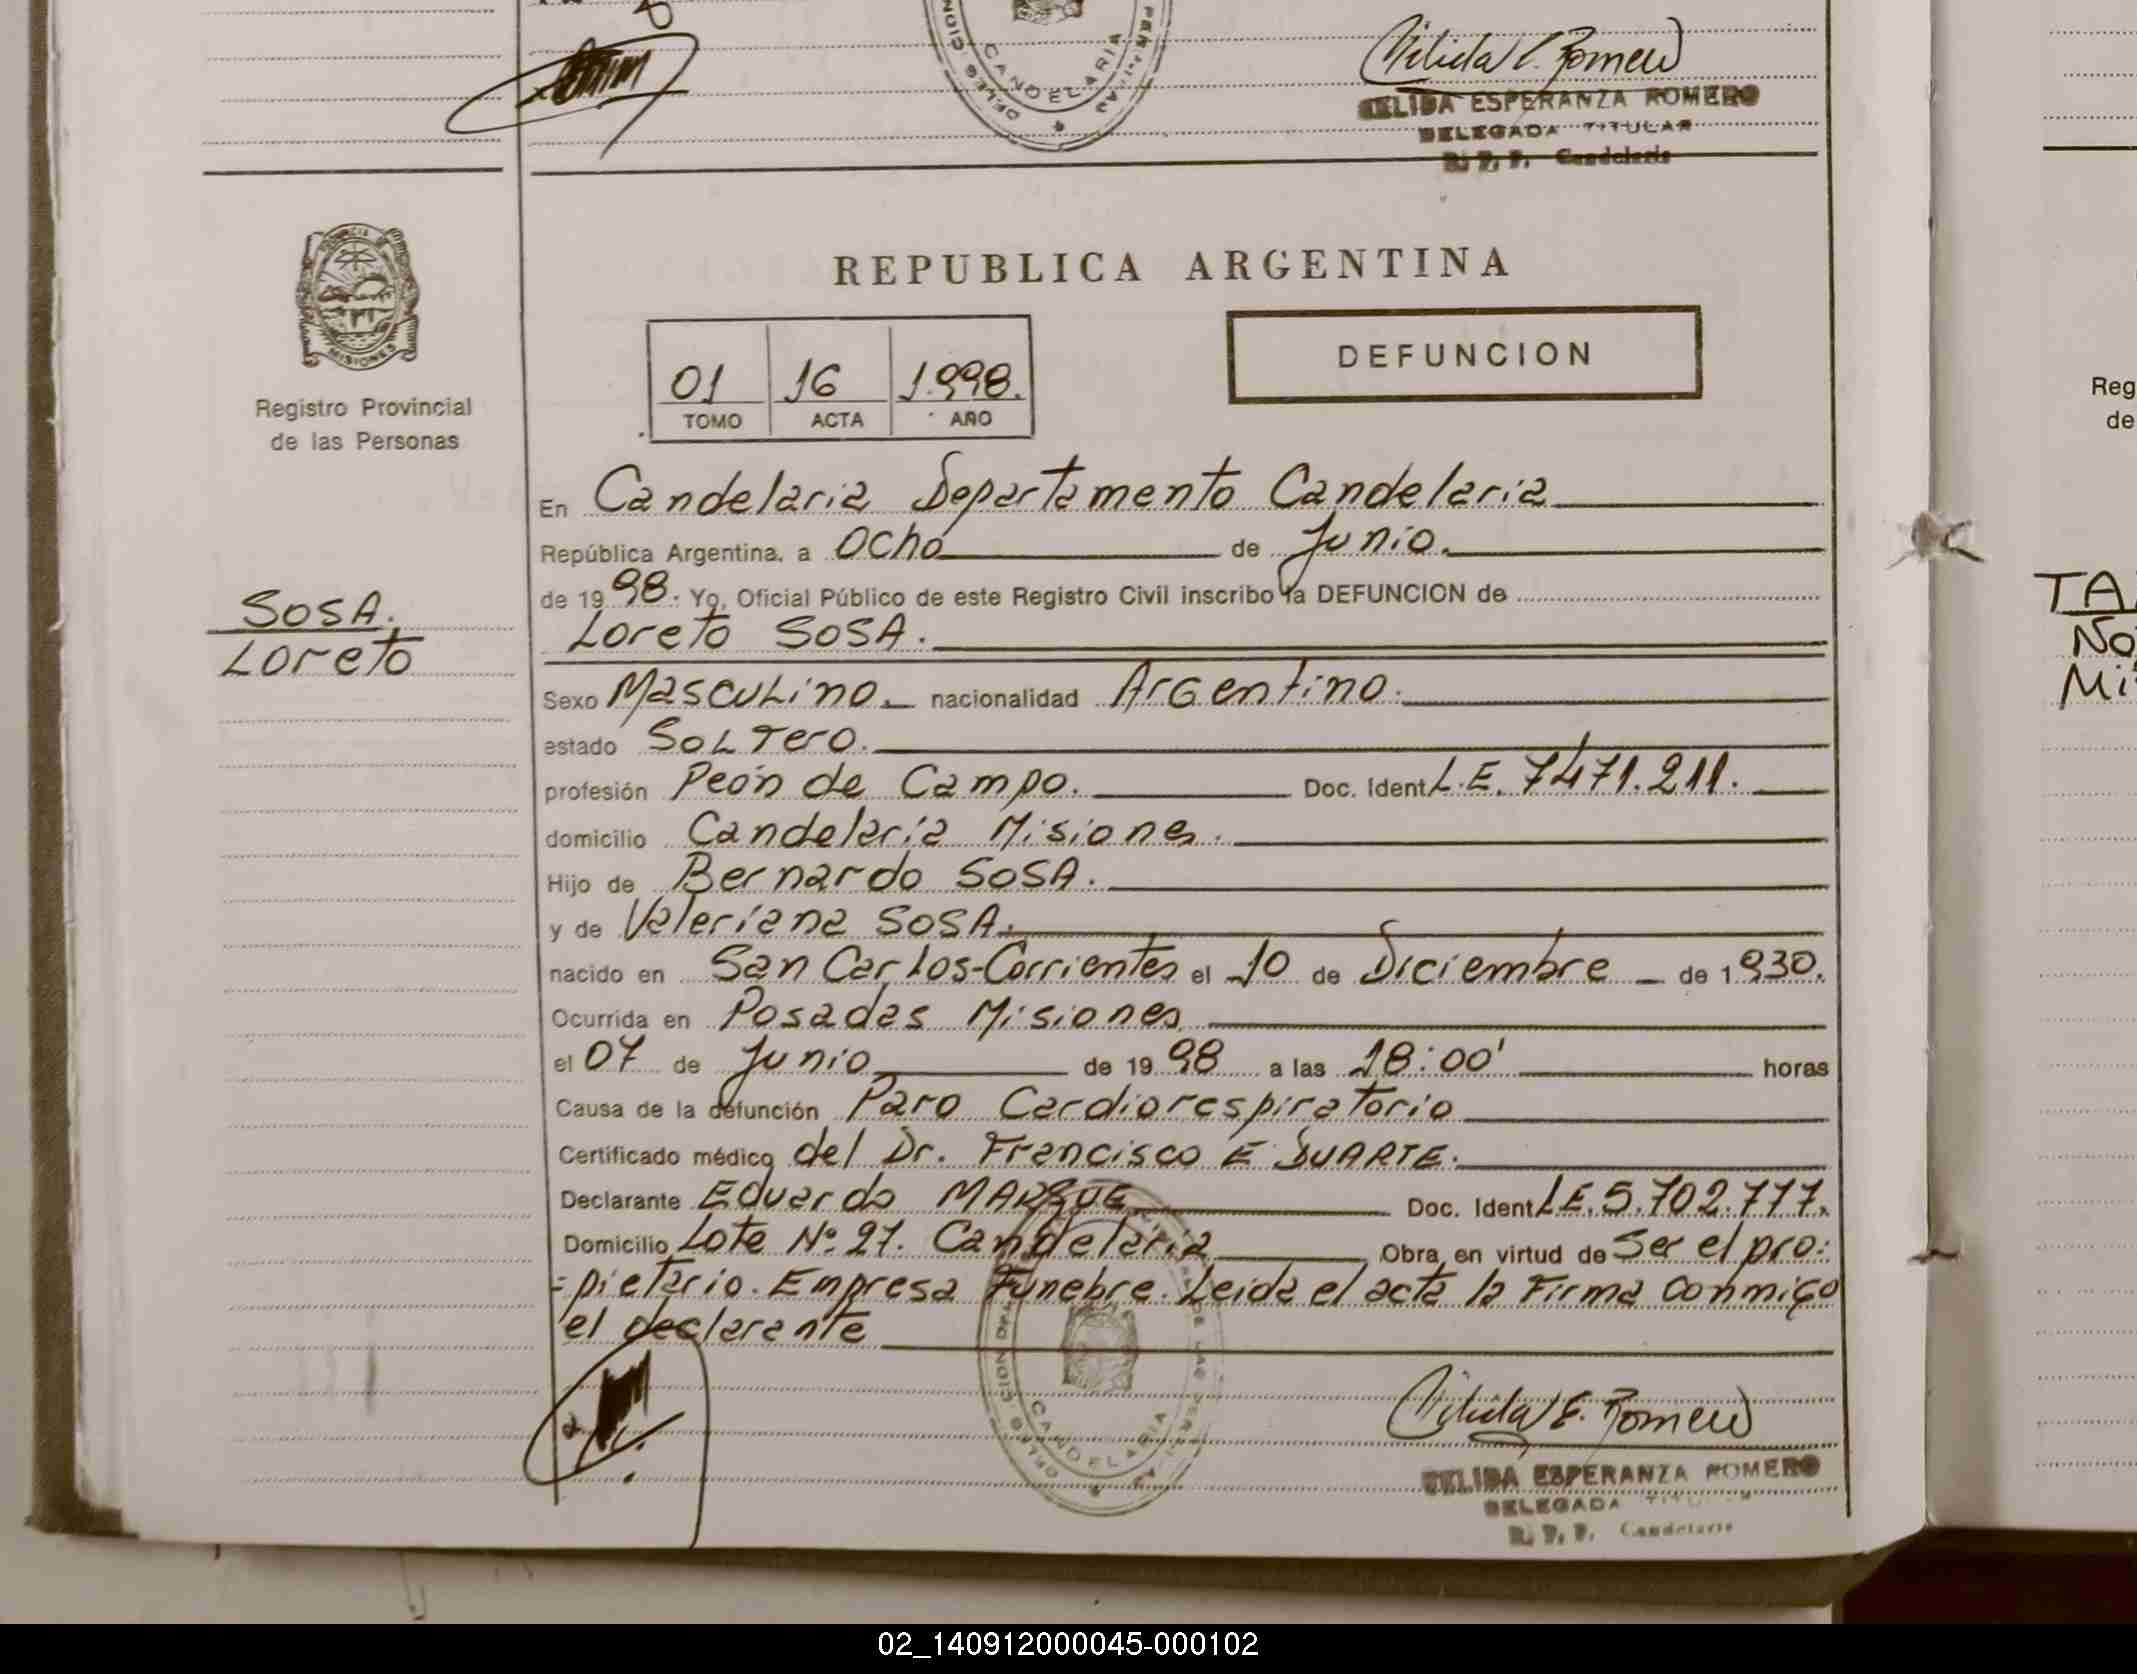 Nélida E. Romero
NELIDA ESPERANZA ROMERO
DELEGADA TITULAR
R. P. P. Candelaria
CANDELARIA
PROVINCIA DE
MISIONES
Registro Provincial
de las Personas
REPUBLICA ARGENTINA
01 16 1.998.
TOMO ACTA AÑO
DEFUNCION
En Candelaria Departamento Candelaria
República Argentina, a Ocho de Junio.
de 1998. Yo, Oficial Público de este Registro Civil inscribo la DEFUNCION de
SOSA.
Loreto
Loreto SOSA.
Sexo Masculino. nacionalidad Argentino.
estado Soltero.
profesión Peón de Campo. Doc. Ident L.E. 7.471.211.
domicilio Candelaria Misiones.
Hijo de Bernardo SOSA.
y de Valeriana SOSA.
nacido en San Carlos-Corrientes el 10 de Diciembre de 1930.
Ocurrida en Posadas Misiones
el 07 de Junio de 1998 a las 18:00' horas
Causa de la defunción Paro Cardiorespiratorio
Certificado médico del Dr. Francisco E DUARTE.
Declarante Eduardo MARQUE Doc. Ident L.E. 5.702.777.
Domicilio Lote Nº 27. Candelaria Obra en virtud de Ser el pro:
=pietario. Empresa Funebre. Leida el acta la Firma conmigo
el declarante
CANDELARIA
Nélida E. Romero
NELIDA ESPERANZA ROMERO
DELEGADA TITULAR
R. P. P. Candelaria
Reg
de
TA
No
Mi
02_140912000045-000102